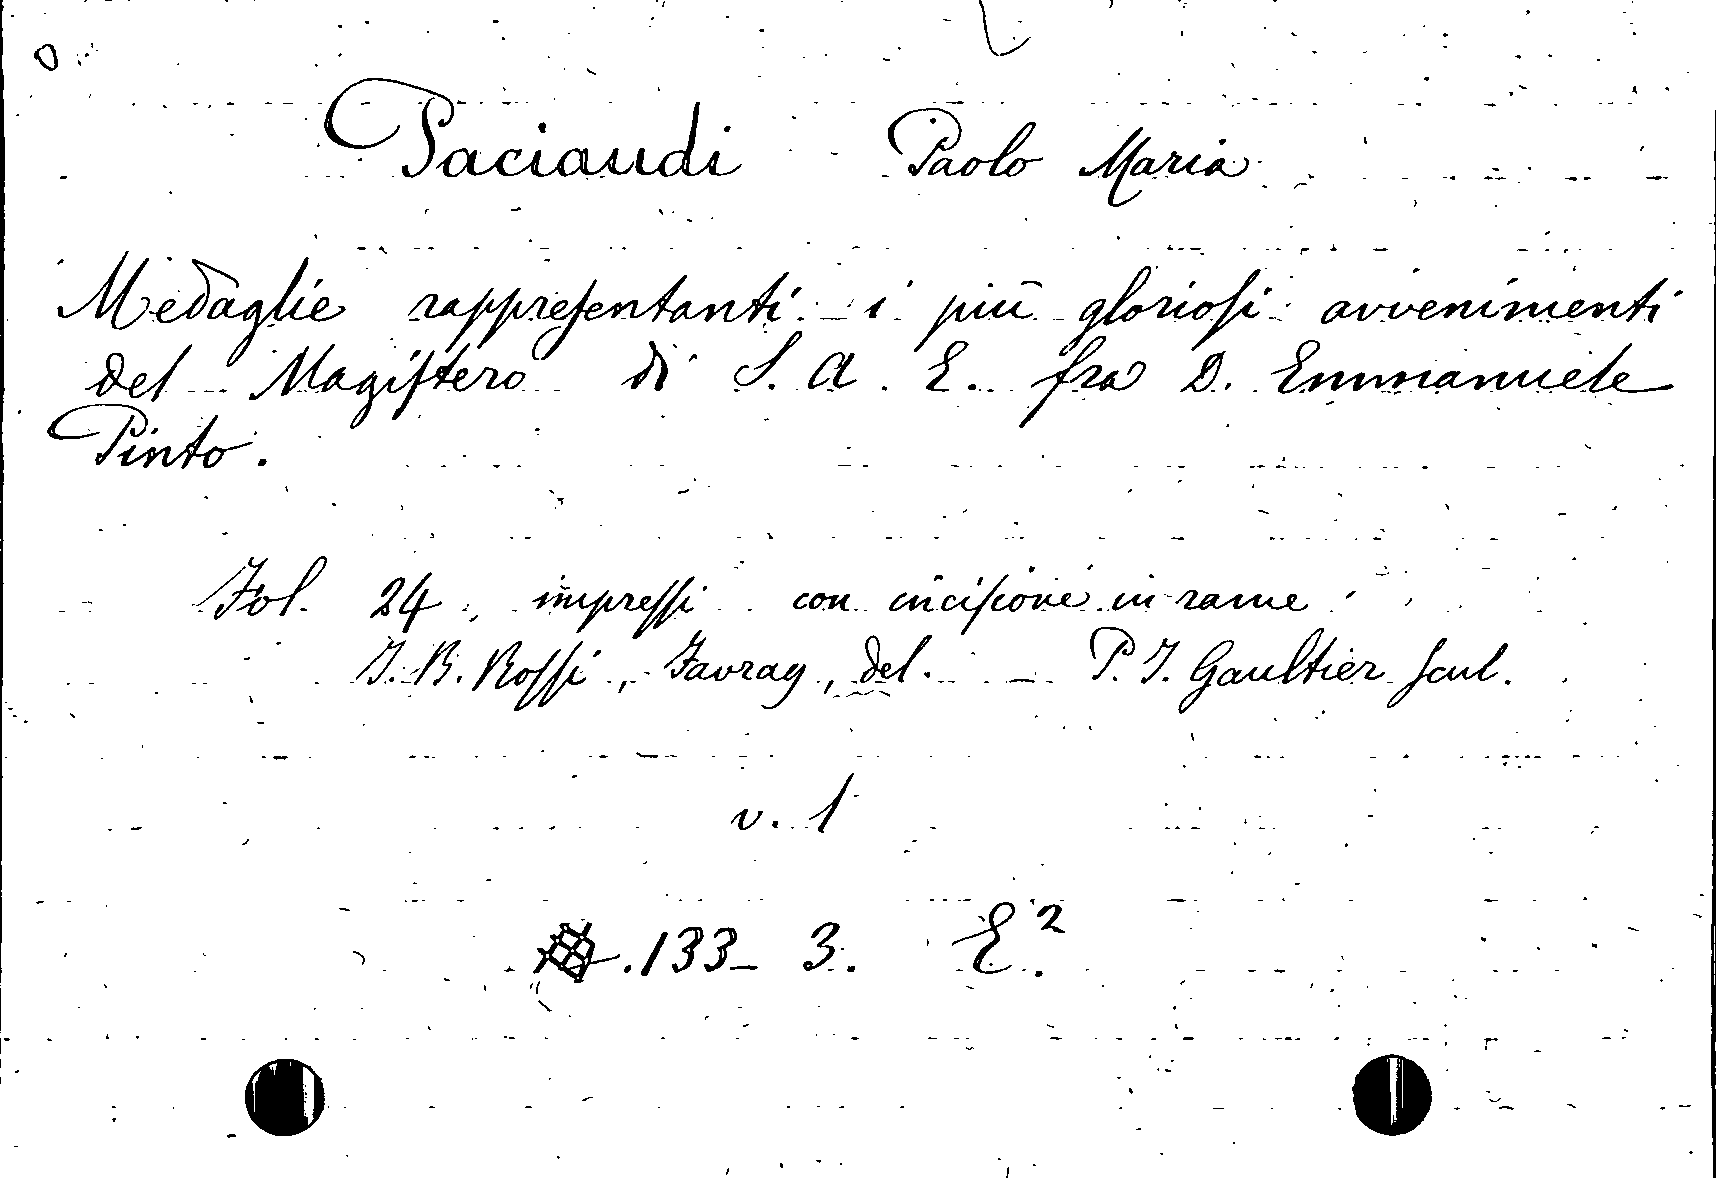 Paciaudi Paolo Maria
Medaglie rappreſentanti i più glorioſi avvenimenti
del Magiſtero di S. A. E. fra D. Emmanuele
Pinto.
Fol. 24, impreſſi con inciſione in rame
J. B. Roſſi, Favray, del. — P. J. Gaultier ſcul.
v. 1
.133_ 3. E².